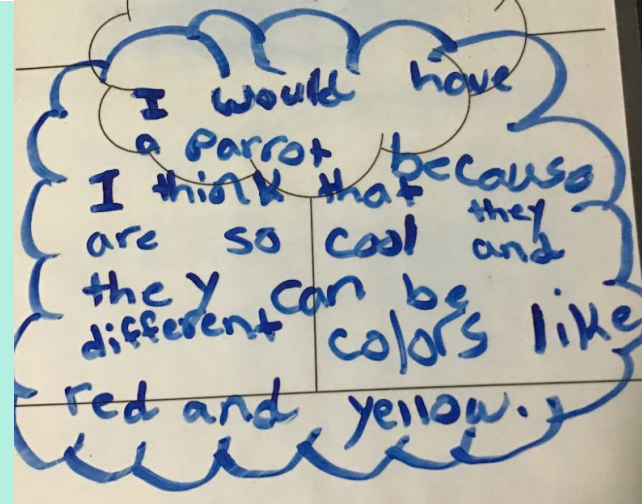 I would have
a parrot because
I think that they
are so cool and
they can be
different colors like
red and yellow.